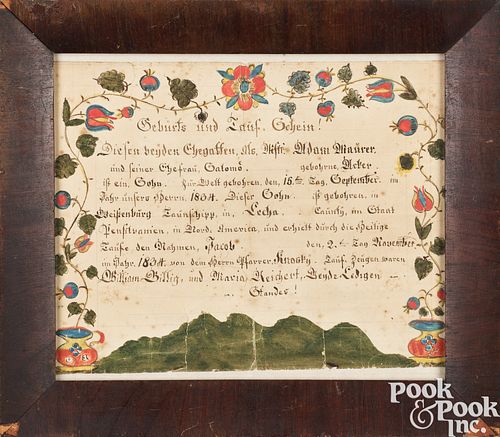 Geburts und Tauf. Schein!
Diesen beyden Ehegatten, Als, Mstr. Adam Maurer,
und seiner Ehefrau, Salomő. gebohrne, Acker.
ist ein, Sohn. Zur Welt gebohren, den, 15.ten Tag, September. im
Jahr unsers Herrn. 1834. Dieser Sohn. ist gebohren, in
Weißenburg Taunschipp, in, Lecha. Caunty, im Staat
Pensilvanien, in Nord, America, und erhielt durch die Heilige
Taufe den Nahmen, Jacob den, 2.ten Tag November.
im Jahr. 1834. von dem Herrn Pfarrer. Knosky. Tauf. Zeugen waren
William Billig, und Maria Reichert, Beyde Ledigen
Standes!
POOK
& POOK
Inc.